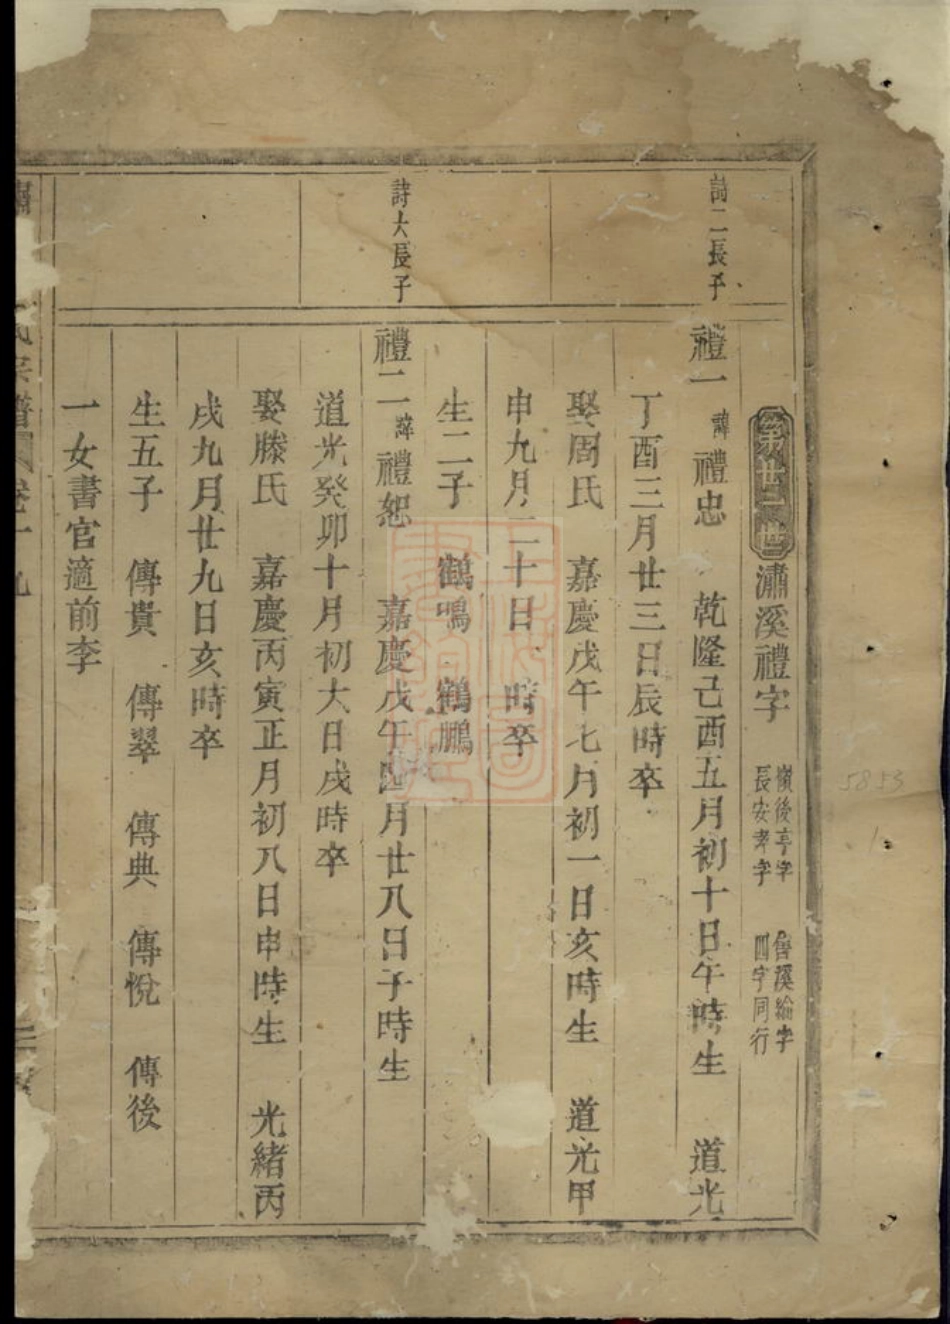 第廿一世 瀟溪禮字 嶺後亭字 長安孝字 魯溪綸字 四字同行
詩二長子
禮一 諱禮忠 乾隆己酉五月初十日午時生 道光
丁酉三月廿三日辰時卒
娶周氏 嘉慶戊午七月初一日亥時生 道光甲
申九月二十日 時卒
生二子 鶴鳴 鶴鵬
詩大長子
禮二 諱禮恕 嘉慶戊午四月廿八日子時生
道光癸卯十月初六日戌時卒
娶滕氏 嘉慶丙寅正月初八日申時生 光緒丙
戌九月廿九日亥時卒
生五子 傳貴 傳翠 傳典 傳悅 傳後
一女書官適前李
氏宗譜 卷十九